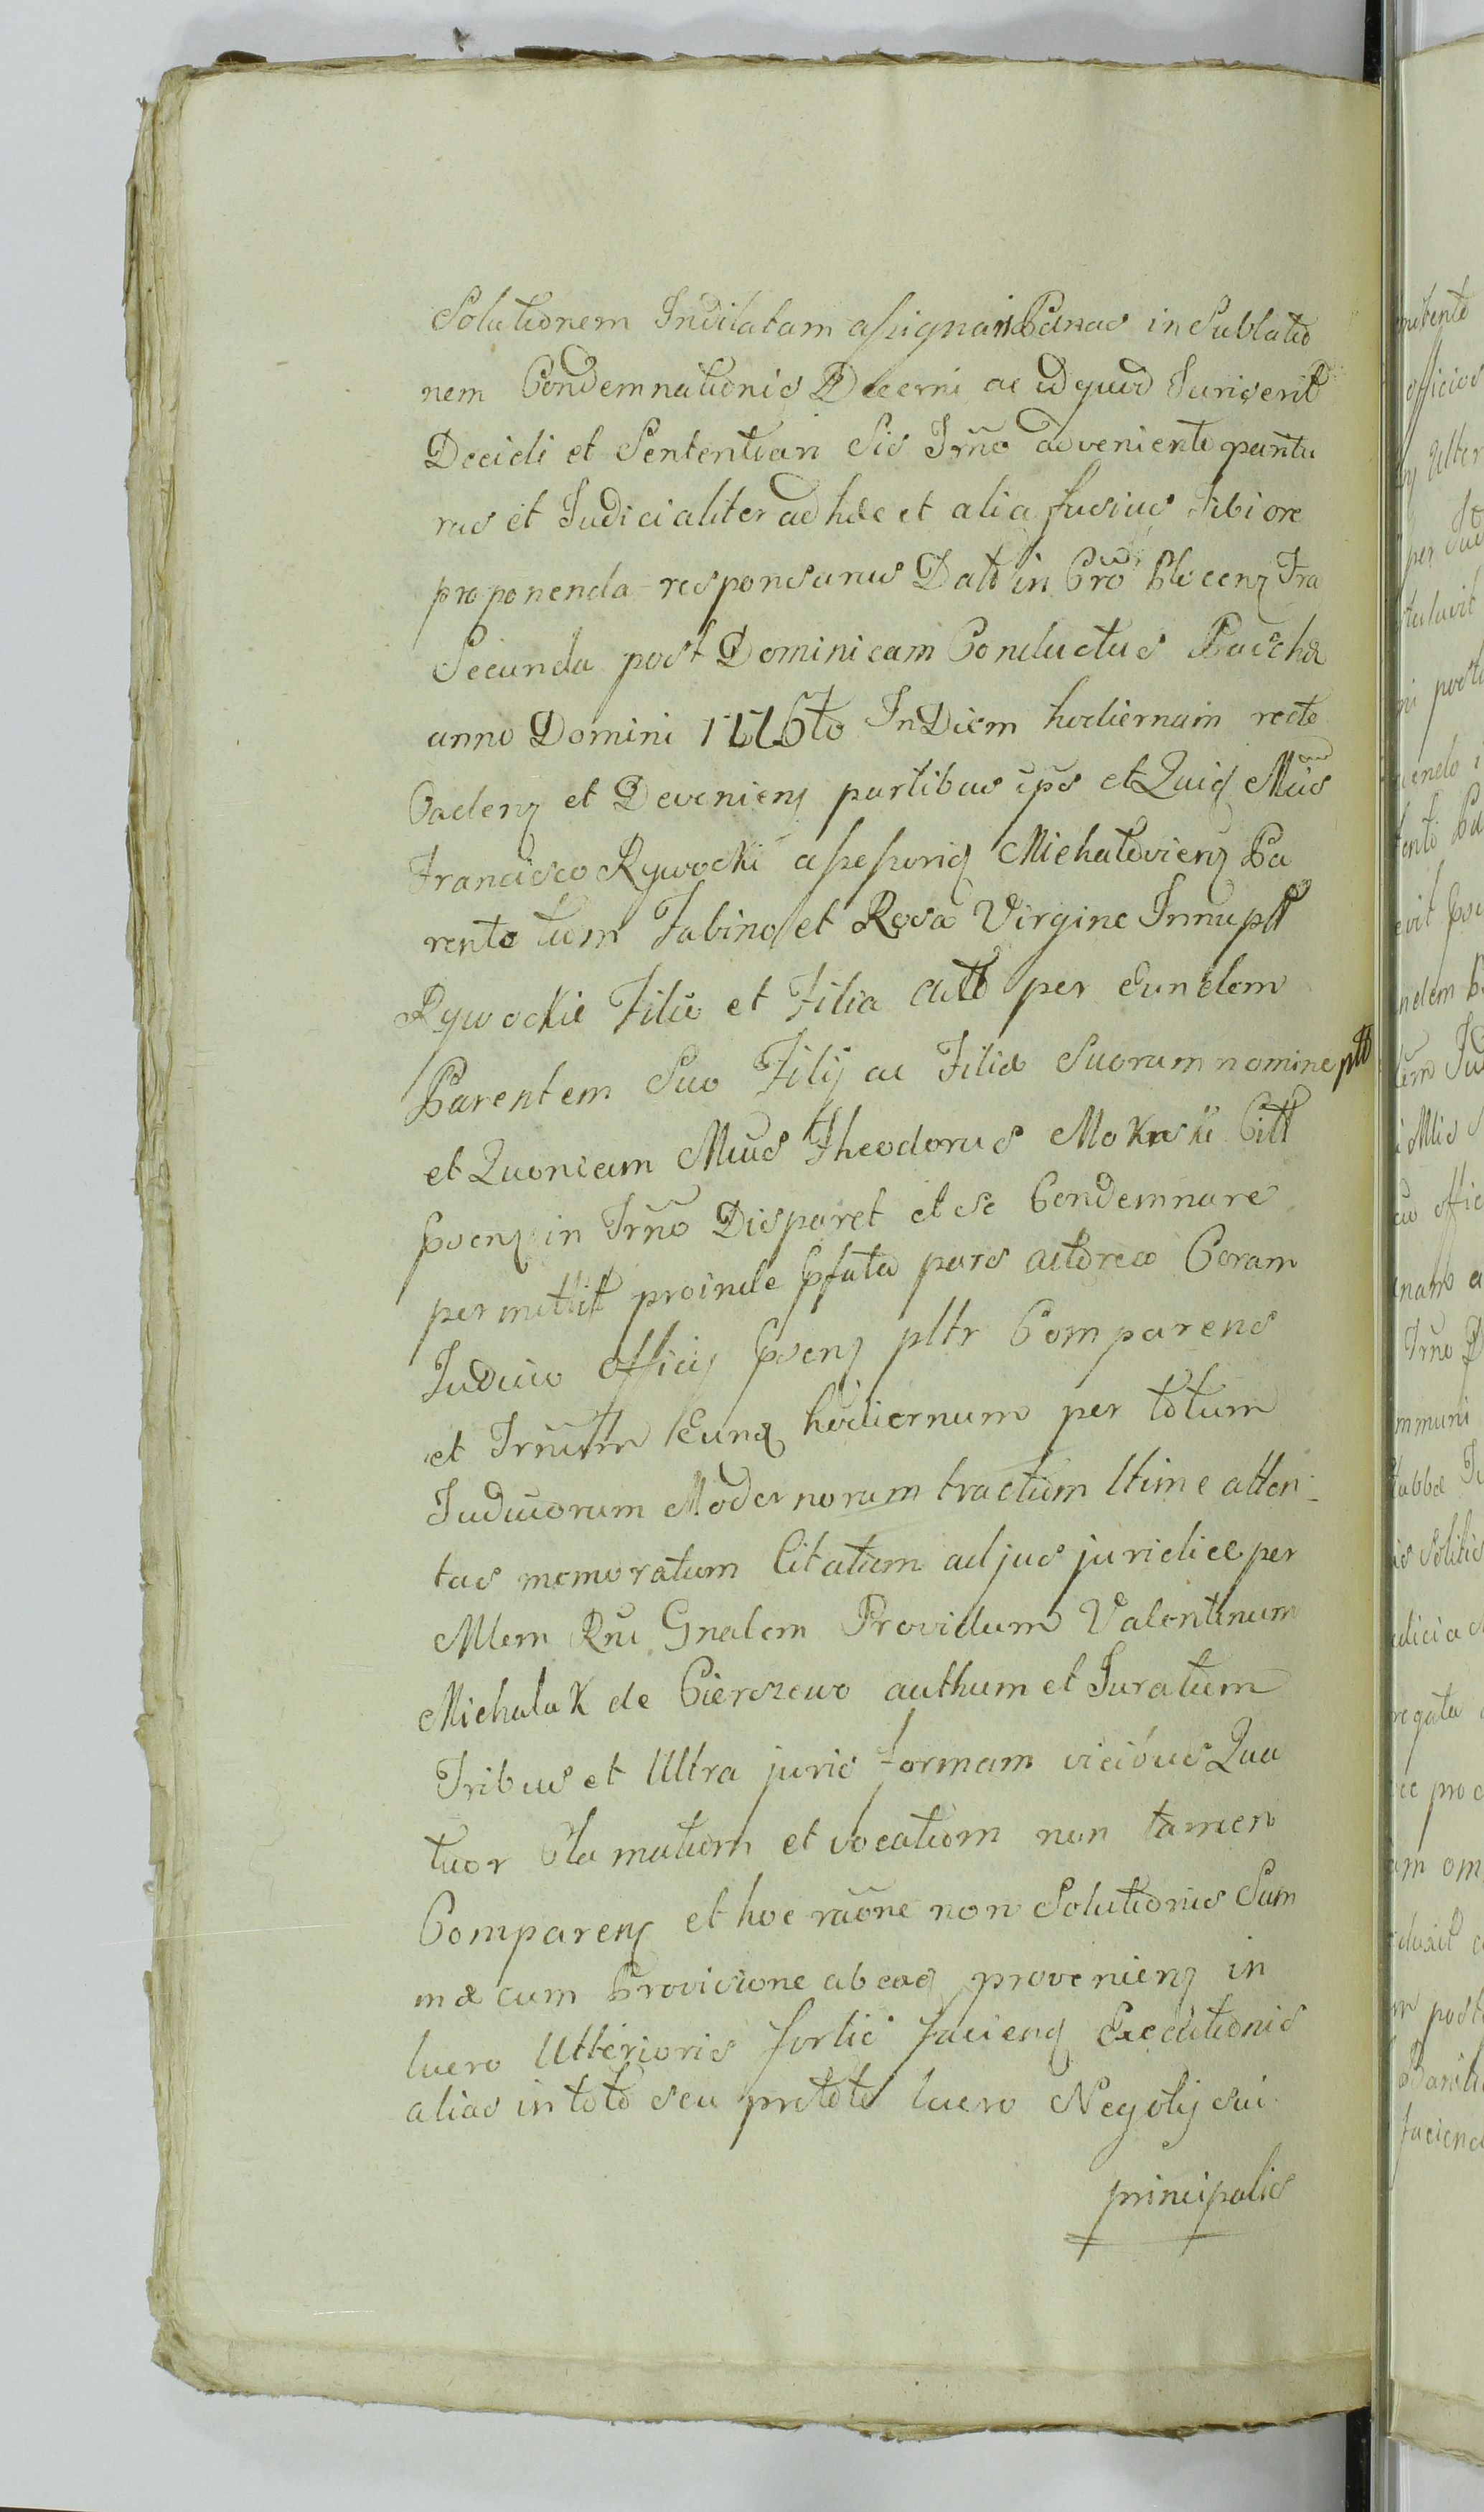 Solutionem Indilatam assignari Pænas in Sublatio
nem Condemnationis Decerni ac id quod Juris erit
Decidi et Sententiari Sis Trño adveniente paritu
rus et Judicialiter ad hæc et alia fusius Tibi ore
proponenda responsurus Datt in Cro Plocens Fra
Secunda post Dominicam Conductus Paschæ
anno Domini 1776to In Diem hodiernam recte
Cadens et Deveniens partibus ips et Quid Mũs
Francisco Rywocki assessoris Michaloviens Pa
rente tum Fabino et Rosa Virgine Innuptt
Rywockie Filio et Filia Actt per Eundem
Parentem Suo Filij ac Filiæ Suorum nomine ptt
et Quoniam Mius Theodorus Mokrski Citt
psens in Trño Disparet et se Condemnare
permittit proinde psata pars actorea Coram
Judicio Officij psens pltr Comparens
et Trñum Eund hodiernum per totum
Judiciorum Modernorum tractum ltime atten-
tas memoratum Citatum ad jus juridice per
Mlem Rni Gnalem Providum Valentinum
Michalak de Cierszewo authum et Juratum
Tribus et Ultra juris formam vicibus Qua
tuor Clamatum et vocatum non tamen
Comparens et hoc raõne non Solutionis Sum
mæ cum Provisione ab eaq proveniens in
lucro Ulterioris fortis faciend Executionis
alias in toto seu pro toto lucro Negotij sui
principalis